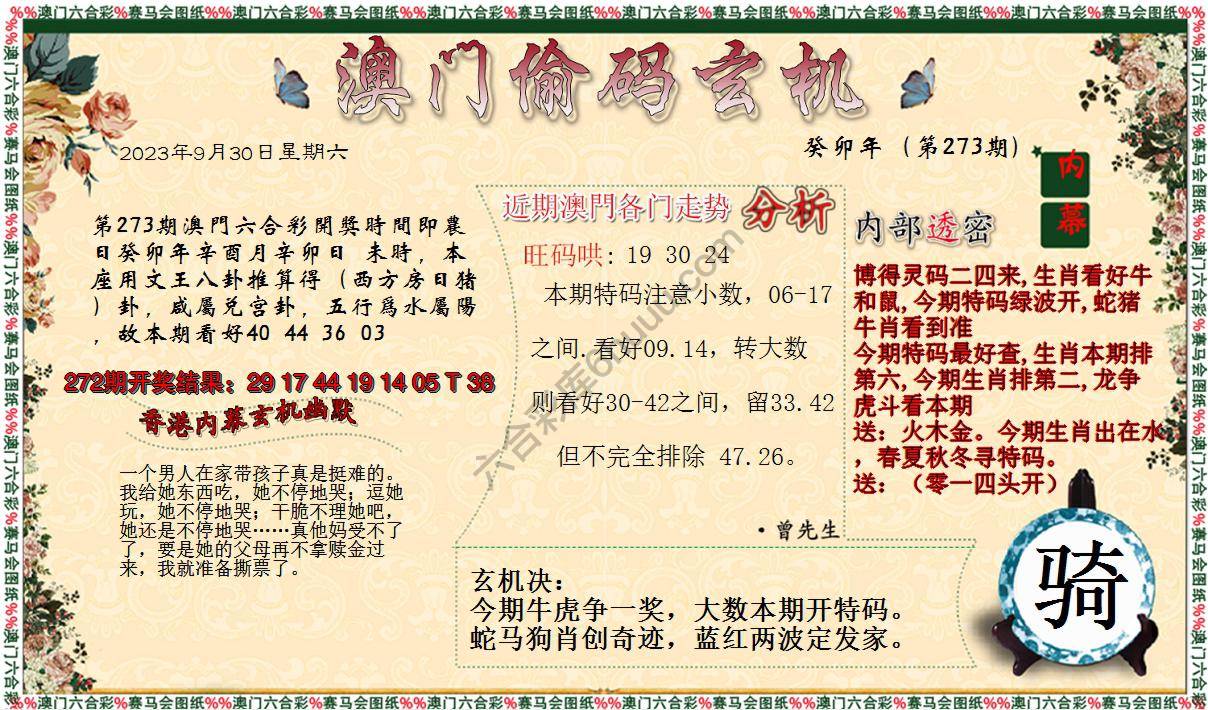 %%澳门六合彩%赛马会图纸%%澳门六合彩%赛马会图纸%%澳门六合彩%赛马会图纸%%澳门六合彩%赛马会图纸%%澳门六合彩%赛马会图纸%%澳门六合彩%赛马会图纸%%
澳门偷码玄机
2023年9月30日星期六
癸卯年（第273期）
内
幕
第273期澳門六合彩開獎時間即農
日癸卯年辛酉月辛卯日 未時，本
座用文王八卦推算得（西方房日猪
）卦，咸屬兑宫卦，五行爲水屬陽
，故本期看好40 44 36 03
272期开奖结果：29 17 44 19 14 05 T 38
香港内幕玄机幽默
一个男人在家带孩子真是挺难的。
我给她东西吃，她不停地哭；逗她
玩，她不停地哭；干脆不理她吧，
她还是不停地哭……真他妈受不了
了，要是她的父母再不拿赎金过
来，我就准备撕票了。
近期澳門各门走势 分析
旺码哄: 19 30 24
本期特码注意小数，06-17
之间.看好09.14，转大数
则看好30-42之间，留33.42
但不完全排除 47.26。
·曾先生
内部透密
博得灵码二四来,生肖看好牛
和鼠,今期特码绿波开,蛇猪
牛肖看到准
今期特码最好查,生肖本期排
第六,今期生肖排第二,龙争
虎斗看本期
送：火木金。今期生肖出在水
，春夏秋冬寻特码。
送：（零一四头开）
玄机决：
今期牛虎争一奖，大数本期开特码。
蛇马狗肖创奇迹，蓝红两波定发家。
骑
%%澳门六合彩%赛马会图纸%%澳门六合彩%赛马会图纸%%澳门六合彩%赛马会图纸%%澳门六合彩%赛马会图纸%%澳门六合彩%赛马会图纸%%澳门六合彩%赛马会图纸%%